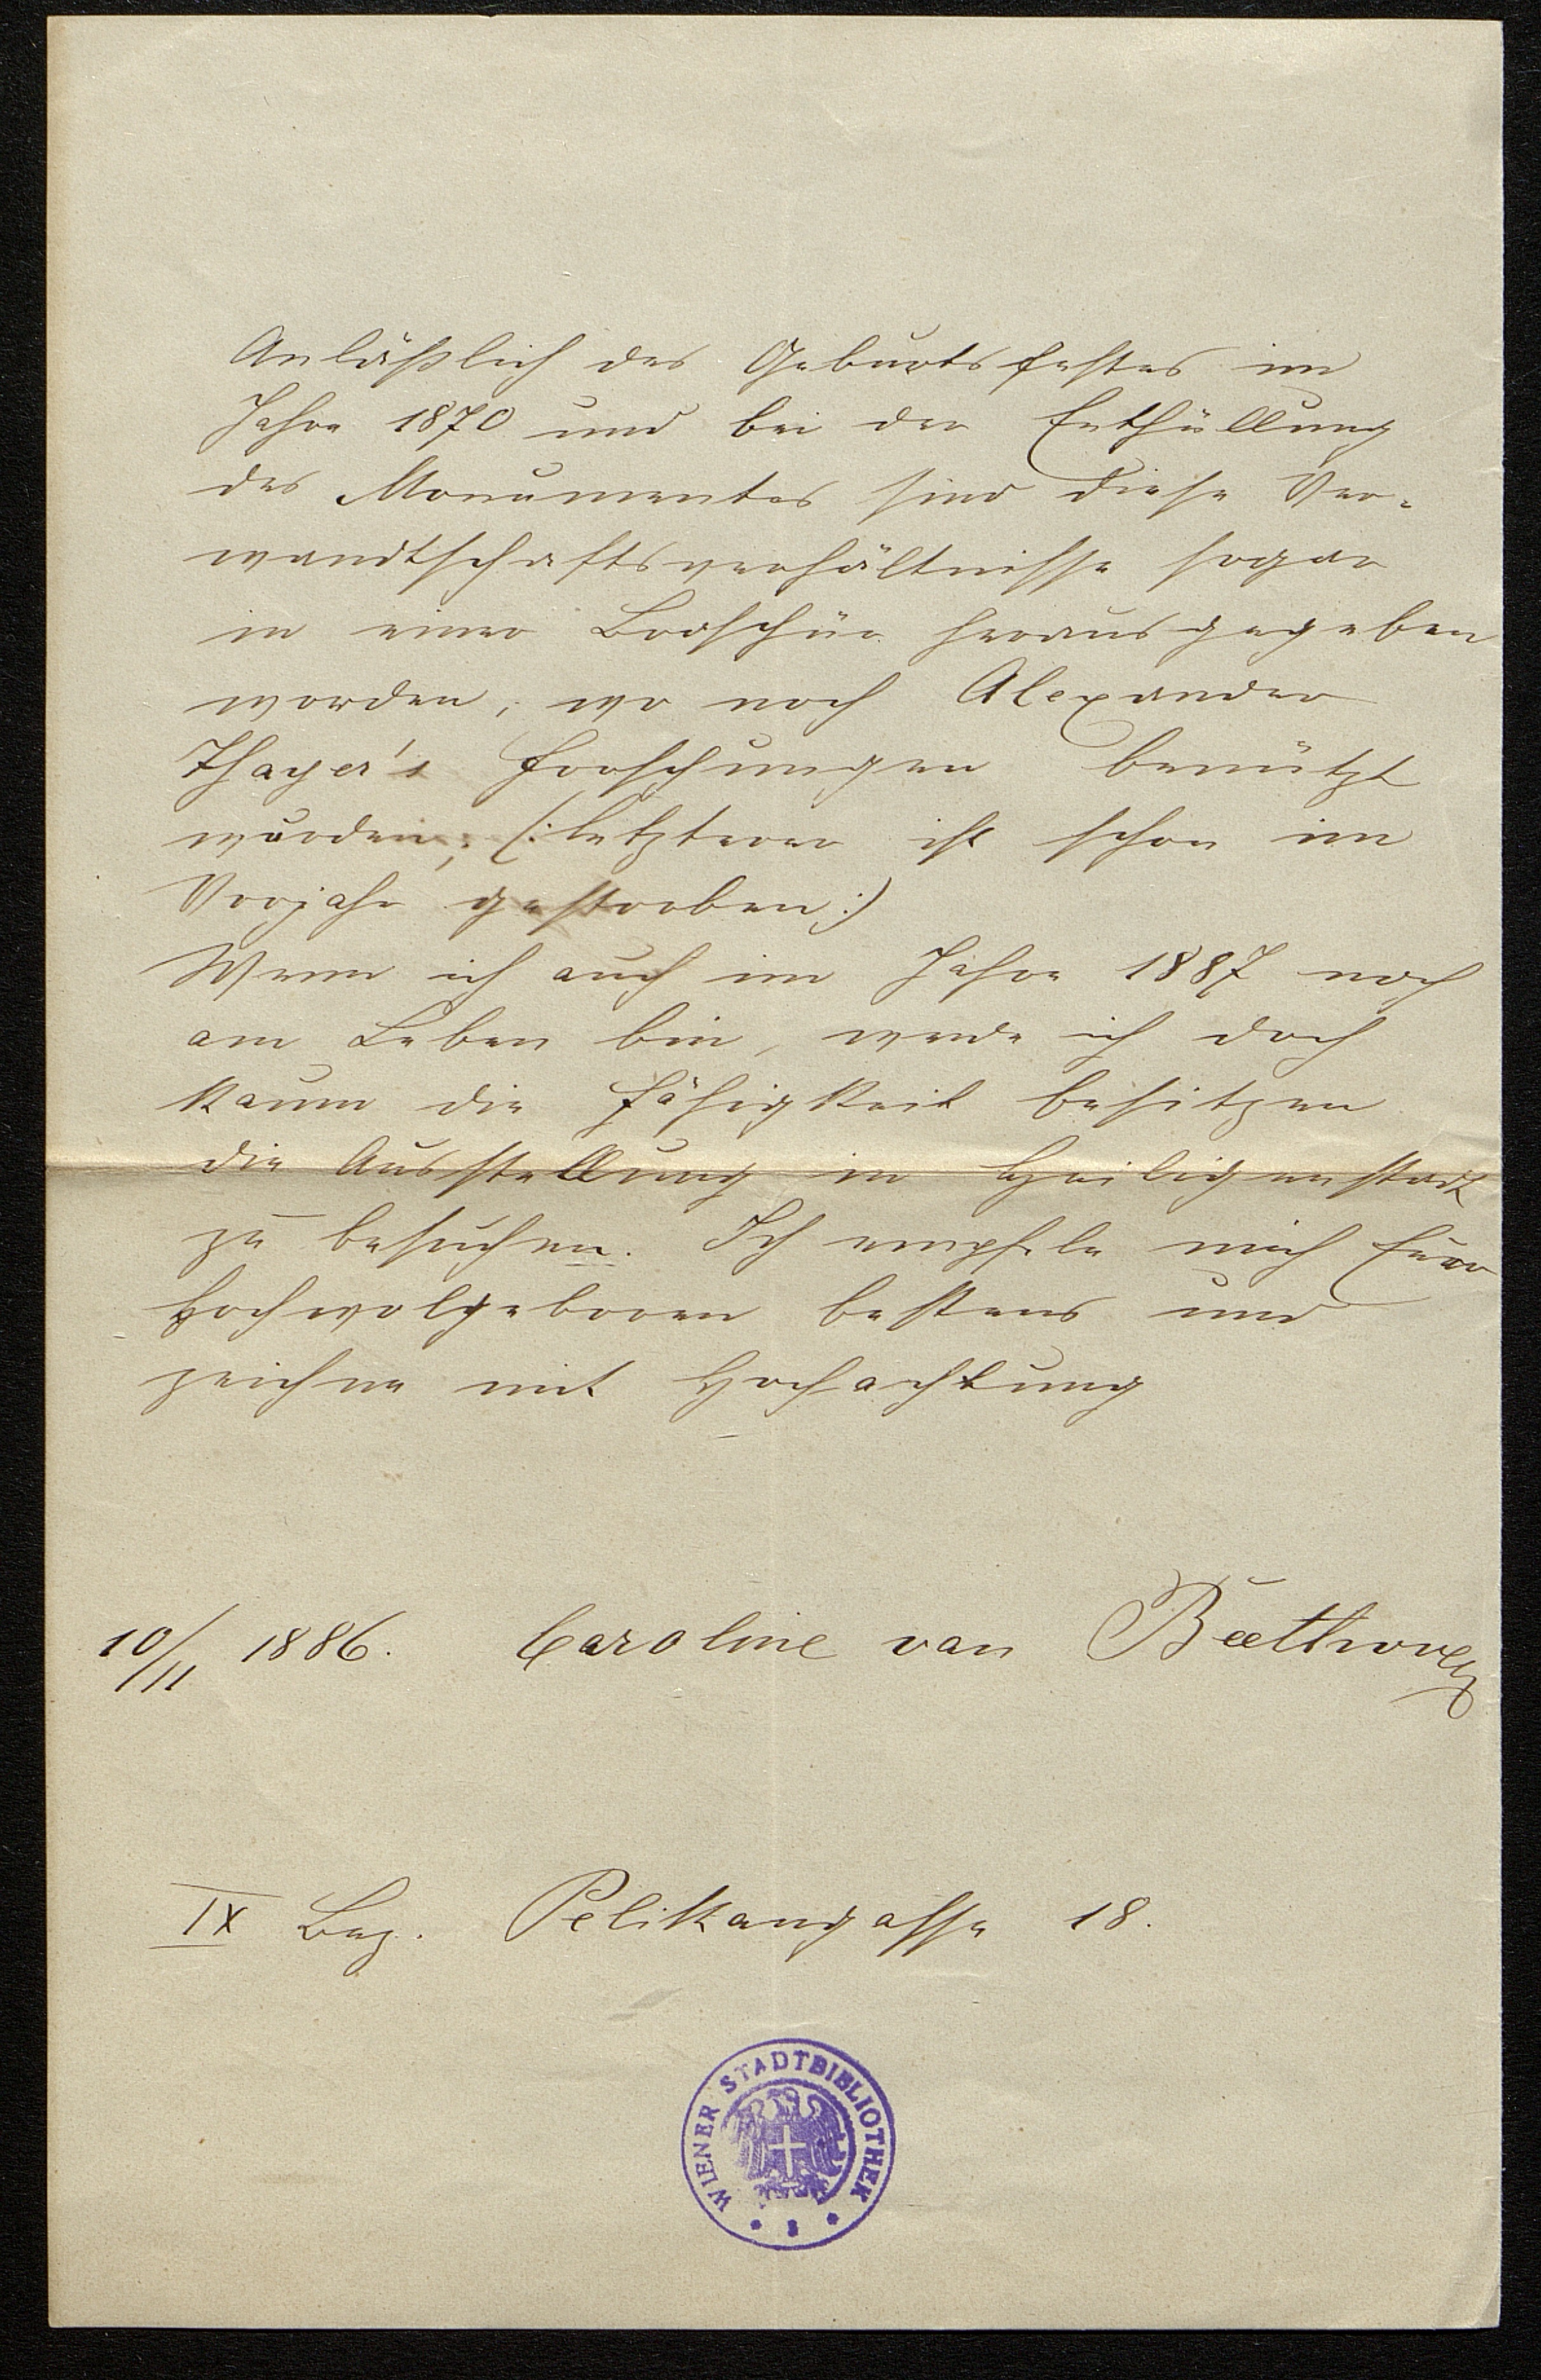 Anläßlich des Geburtsfestes im
Jahre 1870 und bei der Enthüllung
des Monumentes sind diese Ver-
wandtschaftsverhältnisse sogar
in einer Broschür herausgegeben
worden, wo noch Alexander
Thayer's Forschungen benützt
wurden, (: letzterer ist schon im
Vorjahr gestorben :)
Wenn ich auch im Jahre 1887 noch
am Leben bin, werde ich doch
kaum die Fähigkeit besitzen
die Ausstellung in Heiligenstadt
zu besuchen. Ich empfele mich Euer
Hochwolgeboren bestens und
zeichne mit Hochachtung
10/11 1886. Caroline van Beethoven
IX Bez. Pelikangasse 18.
WIENER STADTBIBLIOTHEK